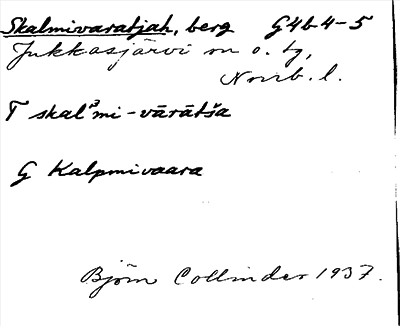 Skalmivaratjah, berg G4b 4-5
Jukkasjärvi sn o. tg,
Norrb. l.
T skalᵊmi-vārātša
G Kalpmivaara
Björn Collinder 1937.